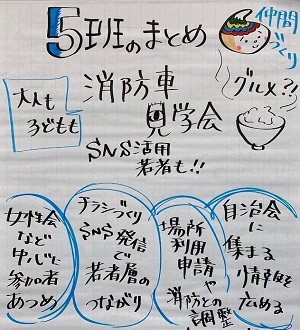 5班のまとめ
仲間
づくり
大人も
子どもも
消防車
見学会
グルメ?!
SNS活用
若者も!!
女性会
など
中心に
参加者
あつめ
チラシづくり
SNS発信
で
若者層の
つながり
場所
利用
申請
や
消防との
調整
自治会
に
集まる
情報を
広める